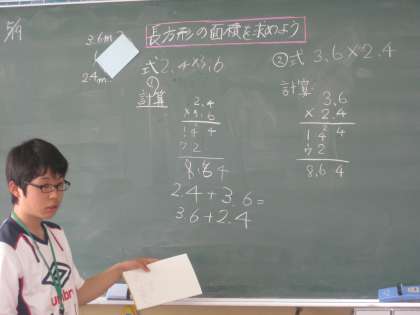 5/9
3.6m
2.4m
長方形の面積を求めよう
式2.4×3.6
①
計算
2.4
×3.6
144
72
8.64
2.4+3.6=
3.6+2.4
②式 3.6×2.4
計算
3.6
×2.4
144
72
8.64
umbro